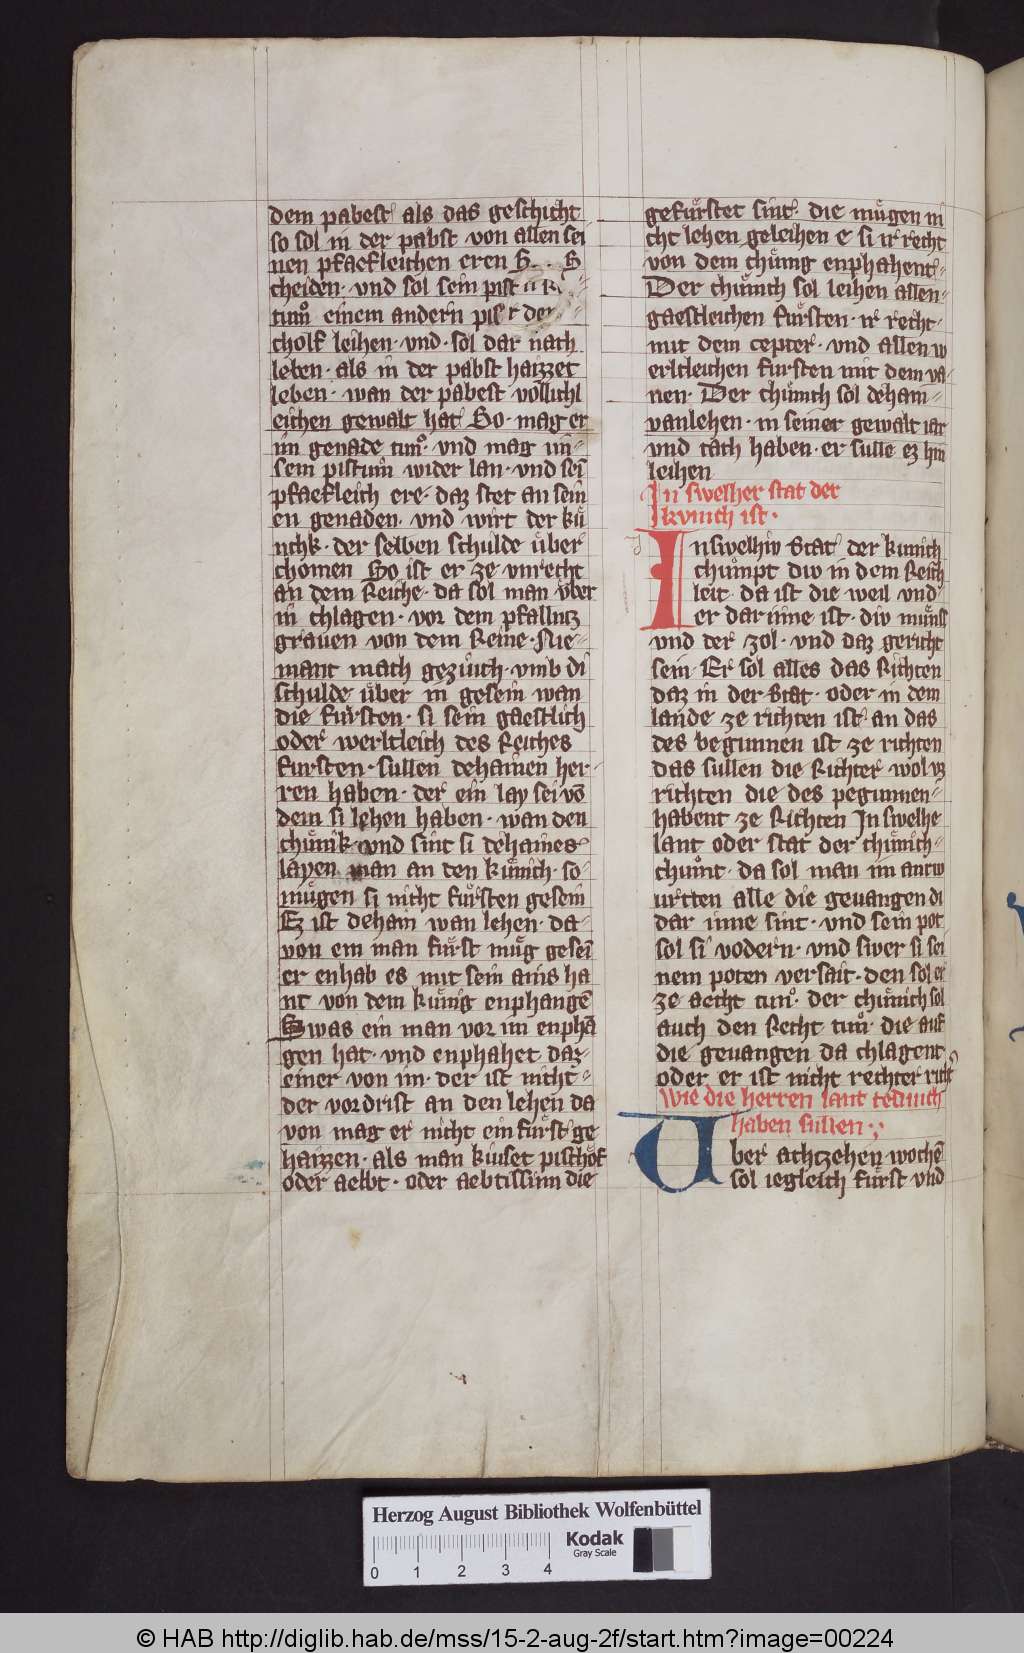 dem pabest als das geschicht
so sol in der pabst von allen sei
nen pfaefleichen eren S
cheiden · vnd sol sein pist
tuͦm einem andern der
cholf leihen · vnd · sol dar nach
leben · als in der pabst haizzet
leben · wan der pabest vollichl
eichen gewalt hat So · mag er
im genade tuͦn · vnd mag im
sein pistuͦm wider lan · vnd sein̄
pfaefleich ere · daz stet an sein
en genaden · vnd wirt der kuͤ
nchk · der selben schulde uͤber
chomen So ist er ze vnrecht
an dem Reiche · da sol man uͤber
in chlagen · vor dem pfallntz
grauen von dem Reine · Nie
mant mach gezuͤuch · vmb di
schulde uͤber in gesein wan
die fuͤrsten · si sein gaestlich
oder werltleich des Reiches
fursten · sullen dehainen her
ren haben · der ein lay sei vō
dem si lehen haben · wan den
chuͤnik · vnd sint si dehaines
layen man an den kuͤnich · so
muͤgen si nicht fuͤrsten gesein
Ez ist dehain wan lehen · da
von ein man fuͤrst muͤg geseī
er enhab es mit sein ains ha
nt von dem kuͤnig enphangē
Swas ein man vor im enphā
gen hat · vnd enphahet daz
einer von im · der ist nicht
der vordrist an den lehen da
von mag er nicht ein fuͤrst ge
haizzen · als man kiuset pischof
oder aebt · oder aebtissinn die
gefuͤrstet sint · die muͤgen ni
cht lehen geleihen e si ir recht
von dem chuͤnig enphahent
Der chuͤnich sol leihen allen
gaestleichen fuͤrsten · ir recht ·
mit dem cepter · vnd allen w
erltleichen fursten mit dem va
nen · Der chuͤnich sol dehain
vanlehen · in seiner gewalt iar
vnd tach haben · er sulle ez hin
leihen
In swelher stat der
kvnich ist ·
J
Inswelhiv Stat der kunich
chuͤmpt div in dem Reich
leit · da ist die weil vnd
er dar inne ist · div muͤnss
vnd der zol · vnd daz gericht
sein · Er sol alles das Richten
daz in der Stat · oder in dem
lande ze richten ist an das
des begunnen ist ze richten
das sullen die Richter wol vz
richten die des pegunnen
habent ze Richten In swelhe
lant oder stat der chuͤnich
chuͤmt · da sol man im antw
urtten alle die geuangen di
dar inne sint · vnd sein pot
sol si vodern · vnd swer si sei
nem poten versait · den sol er
ze aecht tuͦn · der chuͤnich sol
auch den Recht tuͦn · die auf
die geuangen da chlagent
oder er ist nicht rechter richt
wie die herren lant tedinch
haben sullen
Uber achtzehen wochē
sol iegleich fuͤrst vnd
Herzog August Bibliothek Wolfenbüttel
0 1 2 3 4
Kodak
Gray Scale
© HAB http://diglib.hab.de/mss/15-2-aug-2f/start.htm?image=00224